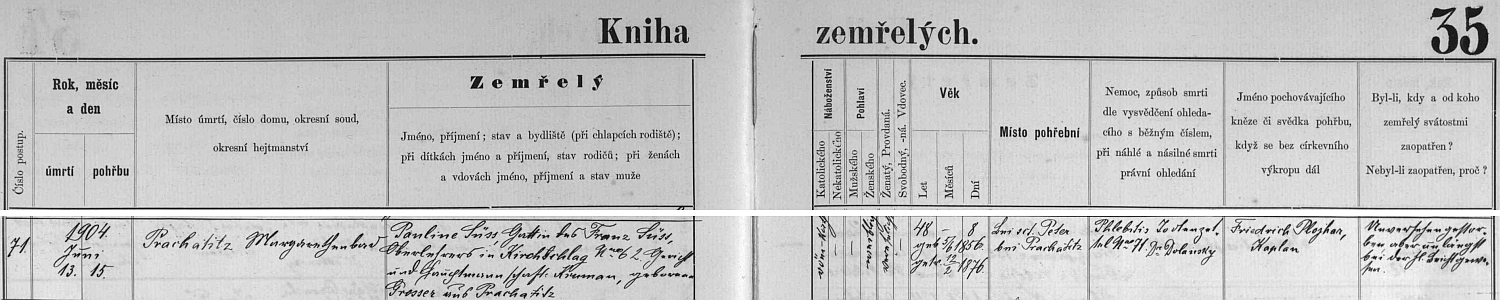 Kniha zemřelých. 35
Číslo postup.
Rok, měsíc
a den
úmrtí
pohřbu
Místo úmrtí, číslo domu, okresní soud,
okresní hejtmanství
Zemřelý
Jméno, příjmení; stav a bydliště (při chlapcích rodiště);
při dítkách jméno a příjmení, stav rodičů; při ženách
a vdovách jméno, příjmení a stav muže
Náboženství
Katolického
Nekatolického
Pohlaví
Mužského
Ženského
Ženatý, Provdaná.
Svobodný, -ná. Vdovec.
Věk
Let
Měsíců
Dní
Místo pohřební
Nemoc, způsob smrti
dle vysvědčení ohleda-
cího s běžným číslem,
při náhlé a násilné smrti
právní ohledání
Jméno pochovávajícího
kněze či svědka pohřbu,
když se bez církevního
výkropu dál
Byl-li, kdy a od koho
zemřelý svátostmi
zaopatřen?
Nebyl-li zaopatřen, proč?
71.
1904
Juni
13. 15.
Prachatitz Margarethenbad
Pauline Süss Gattin des Franz Süss,
Oberlehrers in Kirchschlag Nro 62. Gericht
und Hauptmannschaft: Krumau, geborene
Grosser aus Prachatitz
48 — 8
geb. 5/6 1856.
getr. 12/2 1876.
bei sct. Peter
bei Prachatitz
Phlebitis Todtenzet-
tel Nro 71. Dr Dolansky
Friedrich
Kaplan
Unversehen gestor-
ben aber unlängst
bei der hl. Beicht gewe-
sen.